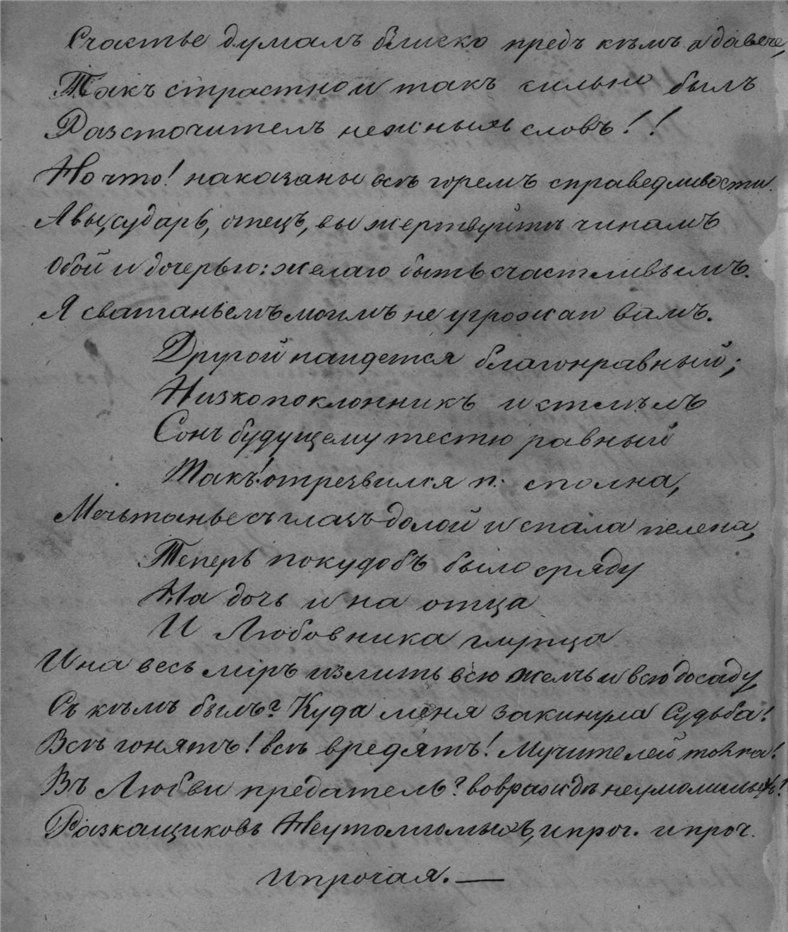 Счастье думалъ близко предъ кѣмъ я давече,
Такъ страстно и такъ сильно былъ
Разсточителъ нежныхъ словъ!!
Но что! наказаны всѣ горемъ справедливости
А вы сударь, отецъ, вы жертвуйте чинамъ
Обой и дочерью: желаю быть счастливымъ.
Я сватаньемъ моимъ не угрожаю вамъ.
Другой наидется благонравный;
Низкопоклонникъ и
Сонъ будущему тестю равный
Такъ! отрезвился я сполна,
Мечьтанье съ глазъ долой и спала пелена,
Теперь покудобъ было сряду
На дочь и на отца
И Любовника глупца
И на весь міръ излить всю желчь и всю досаду
Съ кѣмъ былъ? Куда меня закинула Судьба!
Всѣ гонятъ! всѣ вредятъ! Мучителей толпа!
Въ Любви предатель? вовражде
Разкащиковъ Неутолимыхъ, и проч. и проч.
И прочая. —